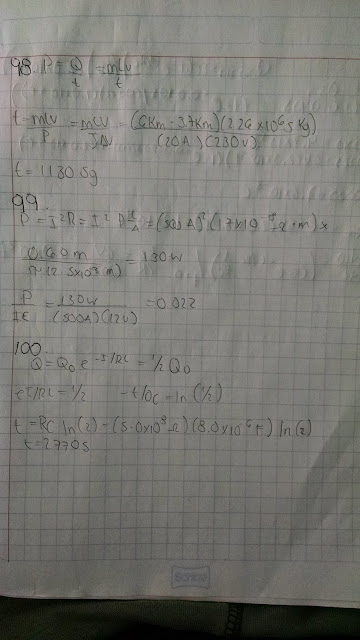 98. P = Q/t = mLv/t
t = mLv/P = mLv/IΔV = (6Km - 3.7Km)(2.26x10^6 J/Kg)/(20A)(230V)
t = 1130 Sg
99.
P = I²R = I² ρℓ/A = (500A)² (1.7x10^-8 Ω·m) x
0.60m/π(2.5x10^-3 m) = 130W
P/IE = 130W/(500A)(12V) = 0.022
100.
Q = Q0 e^-t/RC = 1/2 Q0
e t/RC = 1/2 -t/RC = ln(1/2)
t = RC ln(2) = (5.0x10^8 Ω)(8.0x10^-6 F) ln(2)
t = 2770s
Scribe